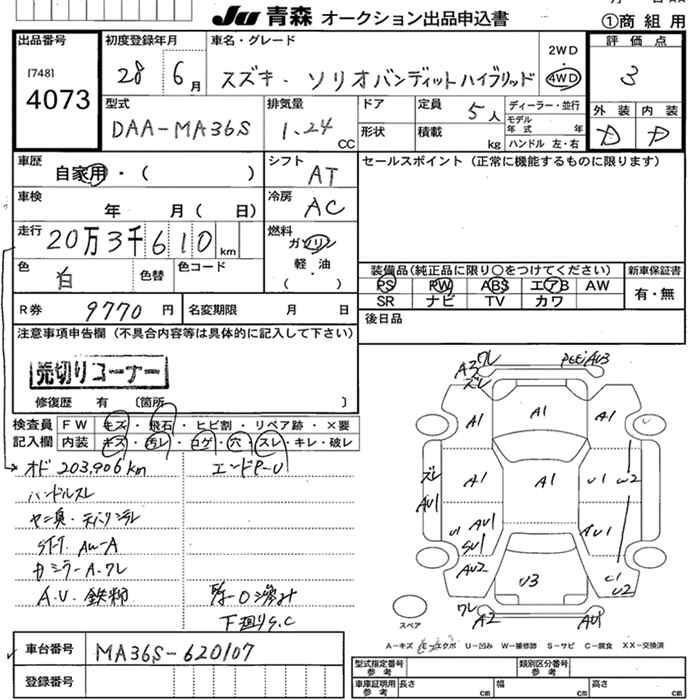 Ju 青森 オークション出品申込書
①商 組 用
出品番号
[748]
4073
初度登録年月
28 6月
車名・グレード
スズキ・ソリオバンディットハイブリッド
2WD
・
4WD
評価点
3
外装 内装
D D
型式
DAA-MA36S
排気量
1.24 CC
ドア
形状
定員
5人
積載
kg
ディーラー・並行
モデル年式 年
ハンドル 左・右
車歴
自家用・( )
シフト
AT
セールスポイント(正常に機能するものに限ります)
車検
年 月( 日)
冷房
AC
走行
20万3千610km
燃料
ガソリン
軽・油
( ・ )
色
白
色替
色コード
R券
9770円
名変期限 月 日
装備品(純正品に限り○をつけてください)
PS PW ABS エアB AW
SR ナビ TV カワ
新車保証書
有・無
後日品
注意事項申告欄(不具合内容等は具体的に記入して下さい)
売切りコーナー
修復歴 有 (箇所 )
検査員記入欄
FW キズ・飛石・ヒビ割・リペア跡・×要
内装 キズ・汚レ・コゲ・穴・スレ・キレ・破レ
オド 203,906km
ハンドルスレ
エンドP-U
カミラーA.ワレ
下廻りS.C
A3 ワレ
ズレ
A1 A1 A1
ズレ
AU1
A1 A1 U1 W2
U1 AU1
SU1
AU1
AU2
U3
C1
U2
ワレ
A2
AU1
スペア
A-キズ U-凹み W-補修跡 S-サビ C-腐食 XX-交換済
車台番号
MA36S-620107
登録番号
型式指定番号
参考
類別区分番号
参考
車庫証明用
参考
長さ cm
幅 cm
高さ cm